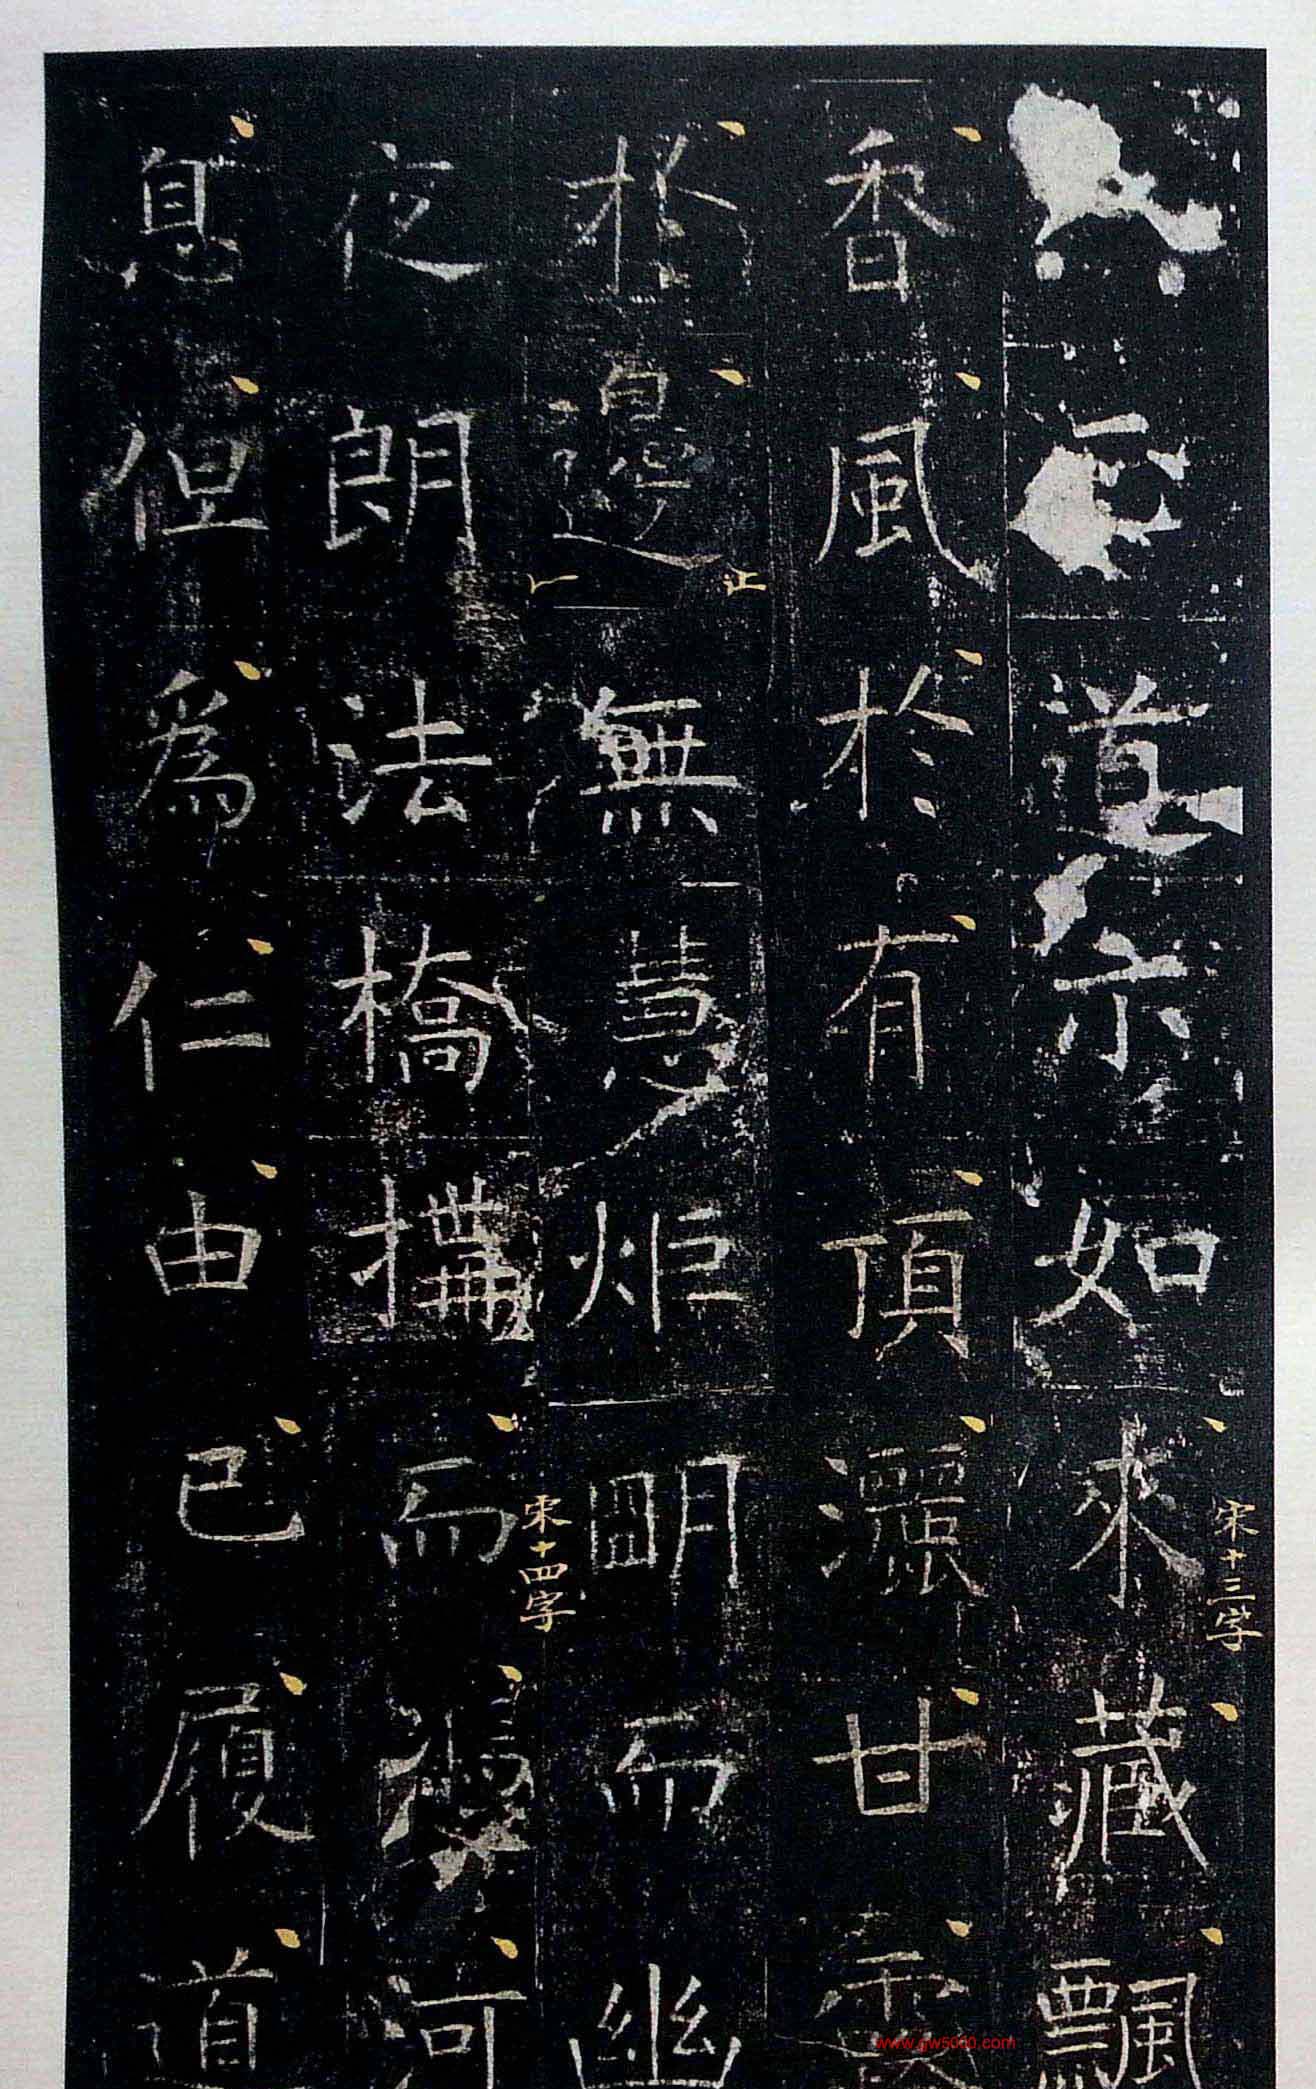 道示如來藏飄
宋十三字
香風於有頂灑甘露
於邊無慧炬明而幽
宋十四字
夜朗法橋搆而河
息但爲仁由已履道